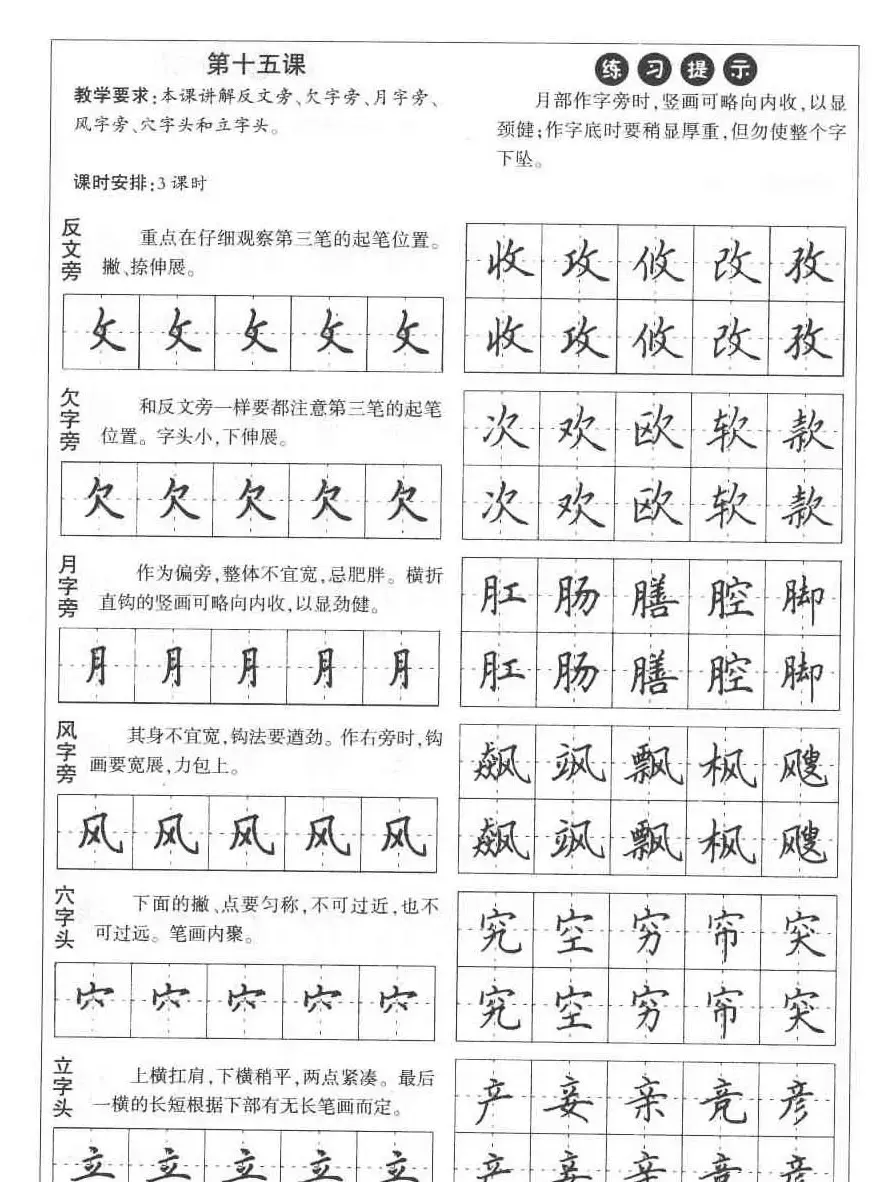 第十五课
教学要求:本课讲解反文旁、欠字旁、月字旁、
风字旁、穴字头和立字头。
课时安排:3课时
练习提示
月部作字旁时,竖画可略向内收,以显
颈健;作字底时要稍显厚重,但勿使整个字
下坠。
反文旁
重点在仔细观察第三笔的起笔位置。
撇、捺伸展。
攵攵攵攵攵
收攻攸改孜
收攻攸改孜
欠字旁
和反文旁一样要都注意第三笔的起笔
位置。字头小,下伸展。
欠欠欠欠欠
次欢欧软款
次欢欧软款
月字旁
作为偏旁,整体不宜宽,忌肥胖。横折
直钩的竖画可略向内收,以显劲健。
月月月月月
肛肠膳腔脚
肛肠膳腔脚
风字旁
其身不宜宽,钩法要遒劲。作右旁时,钩
画要宽展,力包上。
风风风风风
飙飒飘枫飕
飙飒飘枫飕
穴字头
下面的撇、点要匀称,不可过近,也不
可过远。笔画内聚。
穴穴穴穴穴
究空穷帘突
究空穷帘突
立字头
上横扛肩,下横稍平,两点紧凑。最后
一横的长短根据下部有无长笔画而定。
立立立立立
产妾亲竞彦
产妾亲竞彦